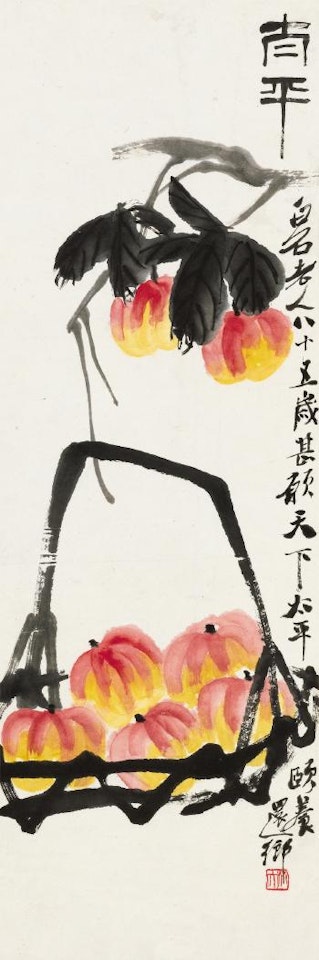 太平
白石老人八十五歲甚願天下太平
頤養還鄉